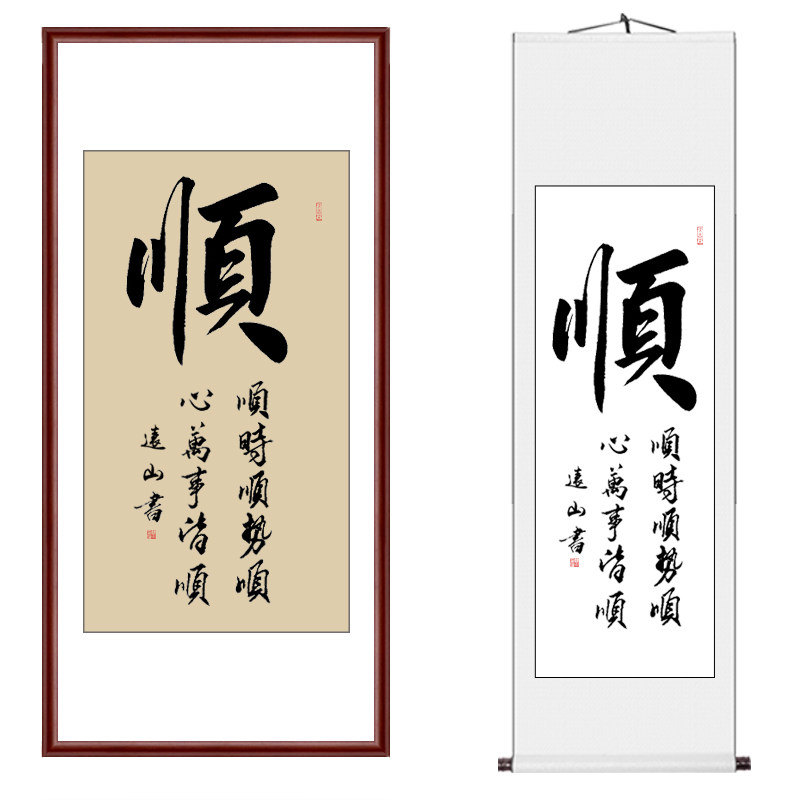 順
順時順勢順
心萬事皆順
遠山書
順
順時順勢順
心萬事皆順
遠山書